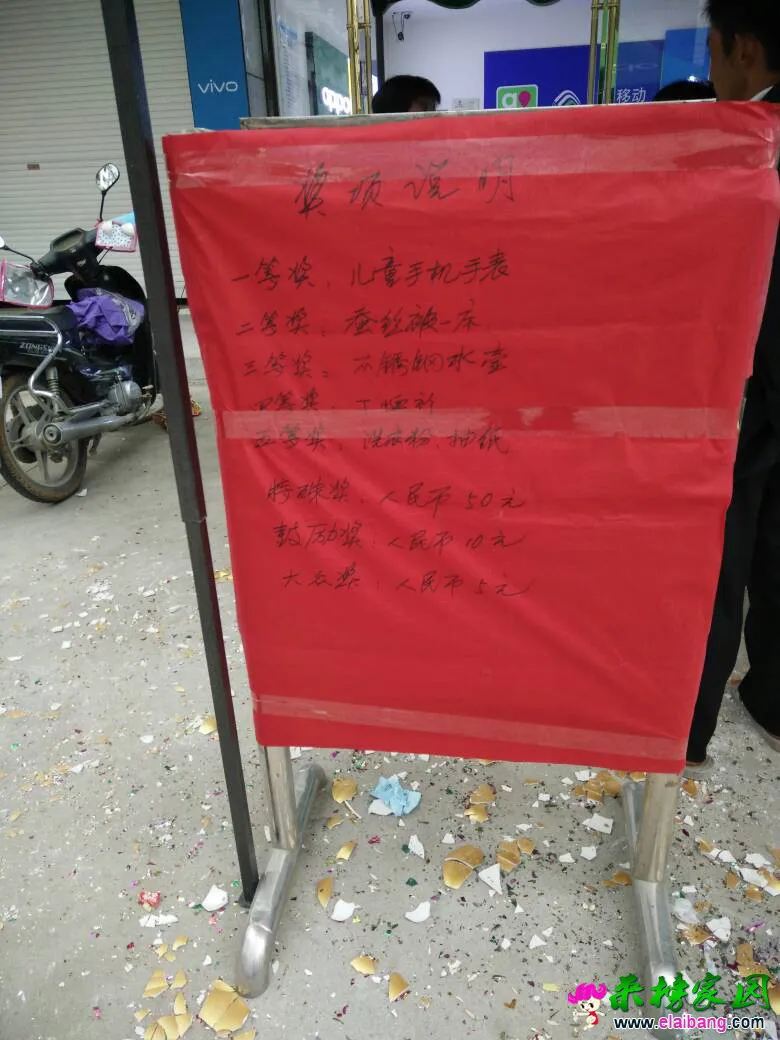 vivo
oppo
移动
奖项说明
一等奖：儿童手机手表
二等奖：蚕丝被一床
三等奖：不锈钢水壶
四等奖：T恤衫
五等奖：洗衣粉、抽纸
特殊奖：人民币50元
鼓励奖：人民币10元
大众奖：人民币5元
来榜家园
www.elaibang.com